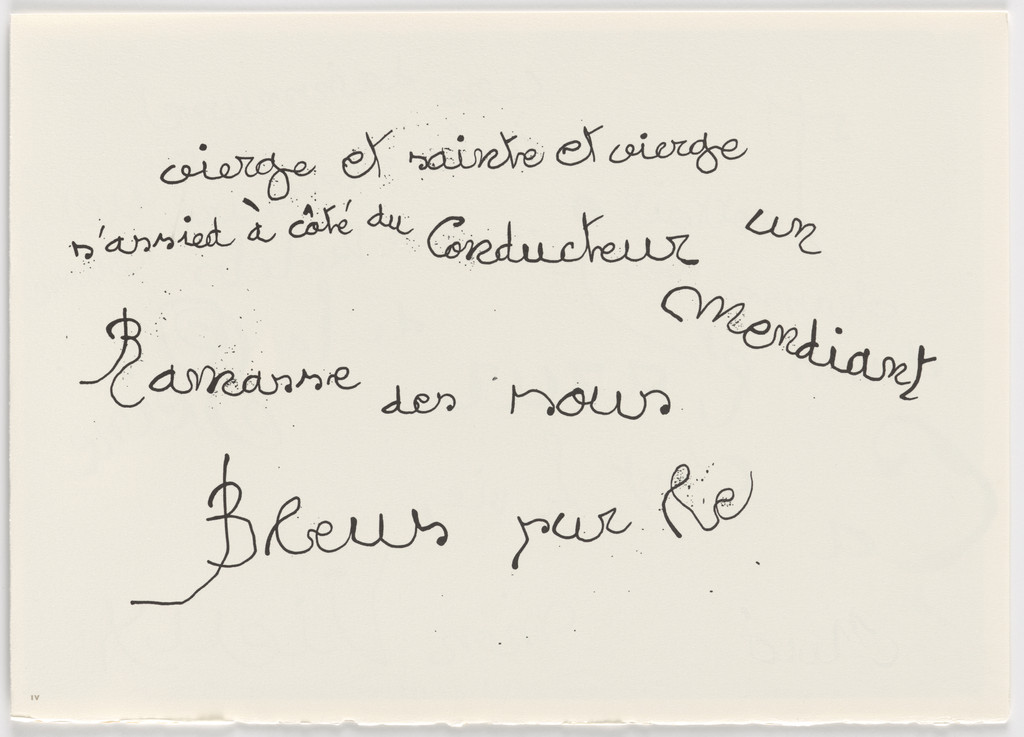 vierge et sainte et vierge
s'assied à côté du Conducteur un
Mendiant
Ramasse des sous
Bleus sur le
IV